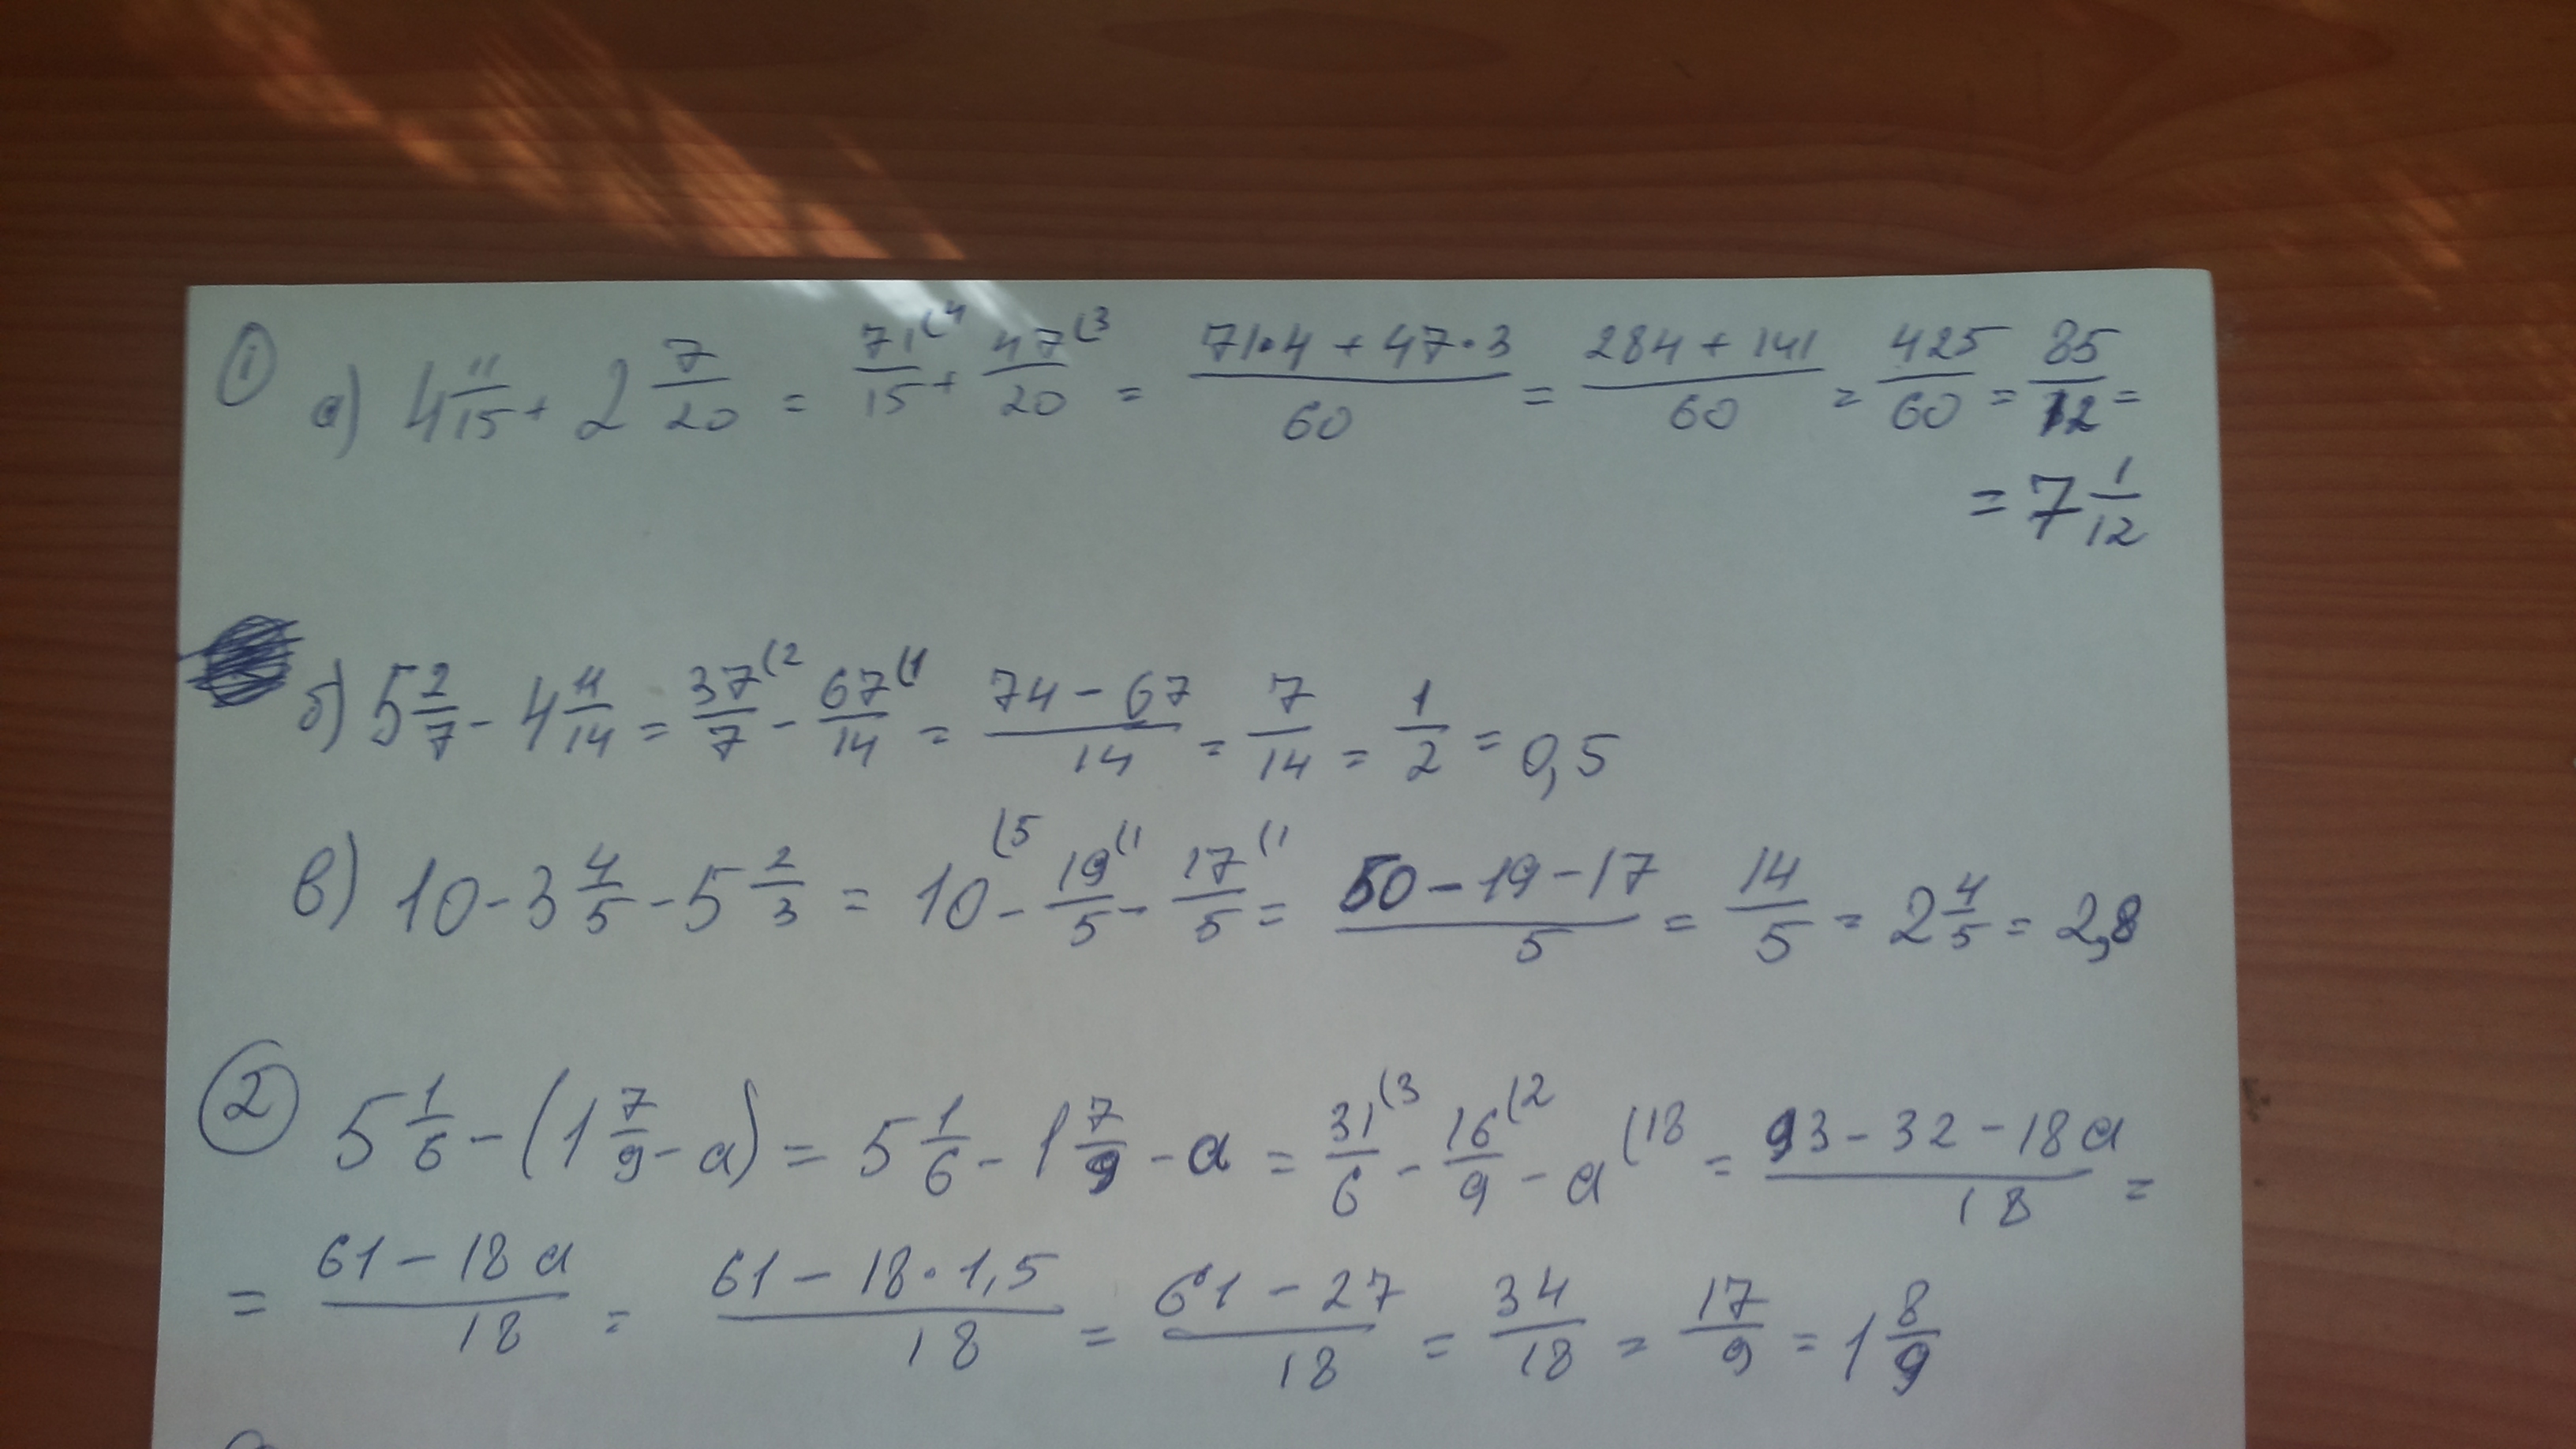 ① а) 4 11/15 + 2 7/20 = 71(4/15 + 47(3/20 = (71·4 + 47·3)/60 = (284 + 141)/60 = 425/60 = 85/12 =
= 7 1/12
б) 5 2/7 - 4 11/14 = 37(2/7 - 67(1/14 = (74 - 67)/14 = 7/14 = 1/2 = 0,5
в) 10 - 3 4/5 - 5 2/3 = 10(5 - 19(1/5 - 17(1/5 = (50 - 19 - 17)/5 = 14/5 = 2 4/5 = 2,8
② 5 1/6 - (1 7/9 - a) = 5 1/6 - 1 7/9 - a = 31(3/6 - 16(2/9 - a(18 = (93 - 32 - 18a)/18 =
= (61 - 18a)/18 = (61 - 18·1,5)/18 = (61 - 27)/18 = 34/18 = 17/9 = 1 8/9